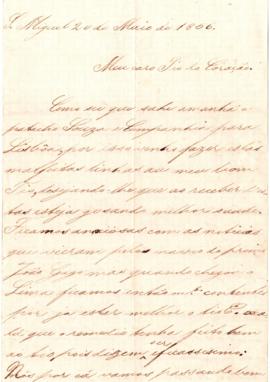 S. Miguel 20 de Maio de 1806.
Meu caro Tio do Coração.
Como sei que sahe amanhã o
patacho Souza e Companhia para
Lisbôa, por isso venho fazer estas
mal feitas linhas ao meu bom
Tio, desejando-lhe que ao receber
estas esteja gosando melhor saude.
Ficamos anciosas com as noticias
que vieram pelos navios do
João mas quando chegou o
Lima ficamos então mto. contentes
por já estar melhor o
que o remedio tenha feito bem
ao tio, pois dizem ser efficassissimo.
Nós por cá vamos passando bem